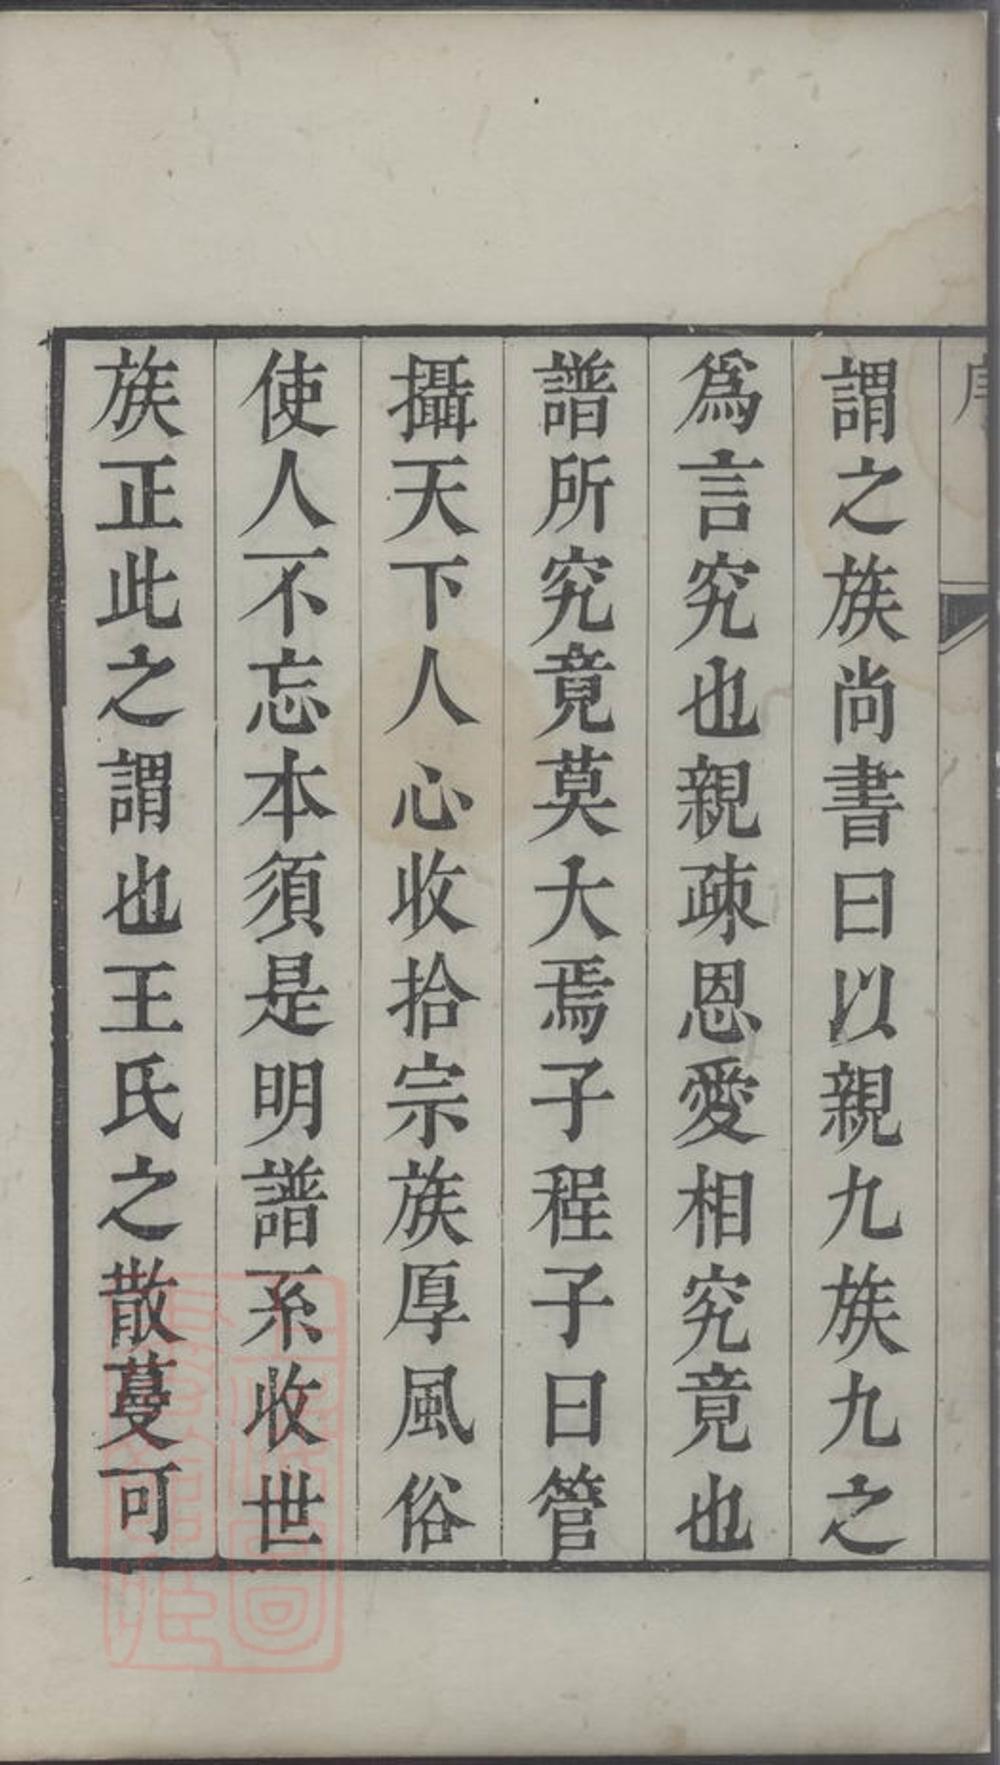 序
謂之族尚書曰以親九族九之
爲言究也親疎恩愛相究竟也
譜所究竟莫大焉子程子曰管
攝天下人心收拾宗族厚風俗
使人不忘本須是明譜系收世
族正此之謂也王氏之散蔓可